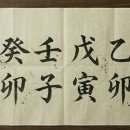 乙卯
戊寅
壬子
癸卯